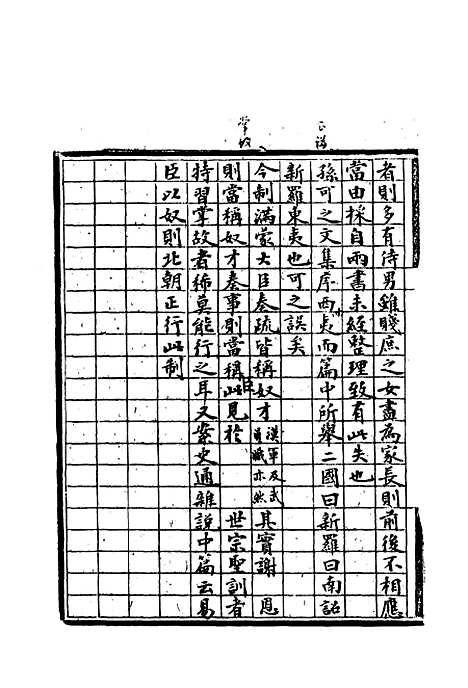 正誤
掌故
者則多有侍男雖賤庶之女盡為家長則前後不相應
當由採自兩書未經整理致有此失也
孫可之文集序西南夷而篇中所舉二國曰新羅曰南詔
新羅東夷也可之誤矣
今制滿蒙大臣奏疏皆稱奴才漢軍及武員職亦然其實謝 恩
則當稱奴才奏事則當稱臣此見於 世宗聖訓者
特習掌故者稀莫能行之耳又案史通雜說中篇云易
臣以奴則北朝正行此制